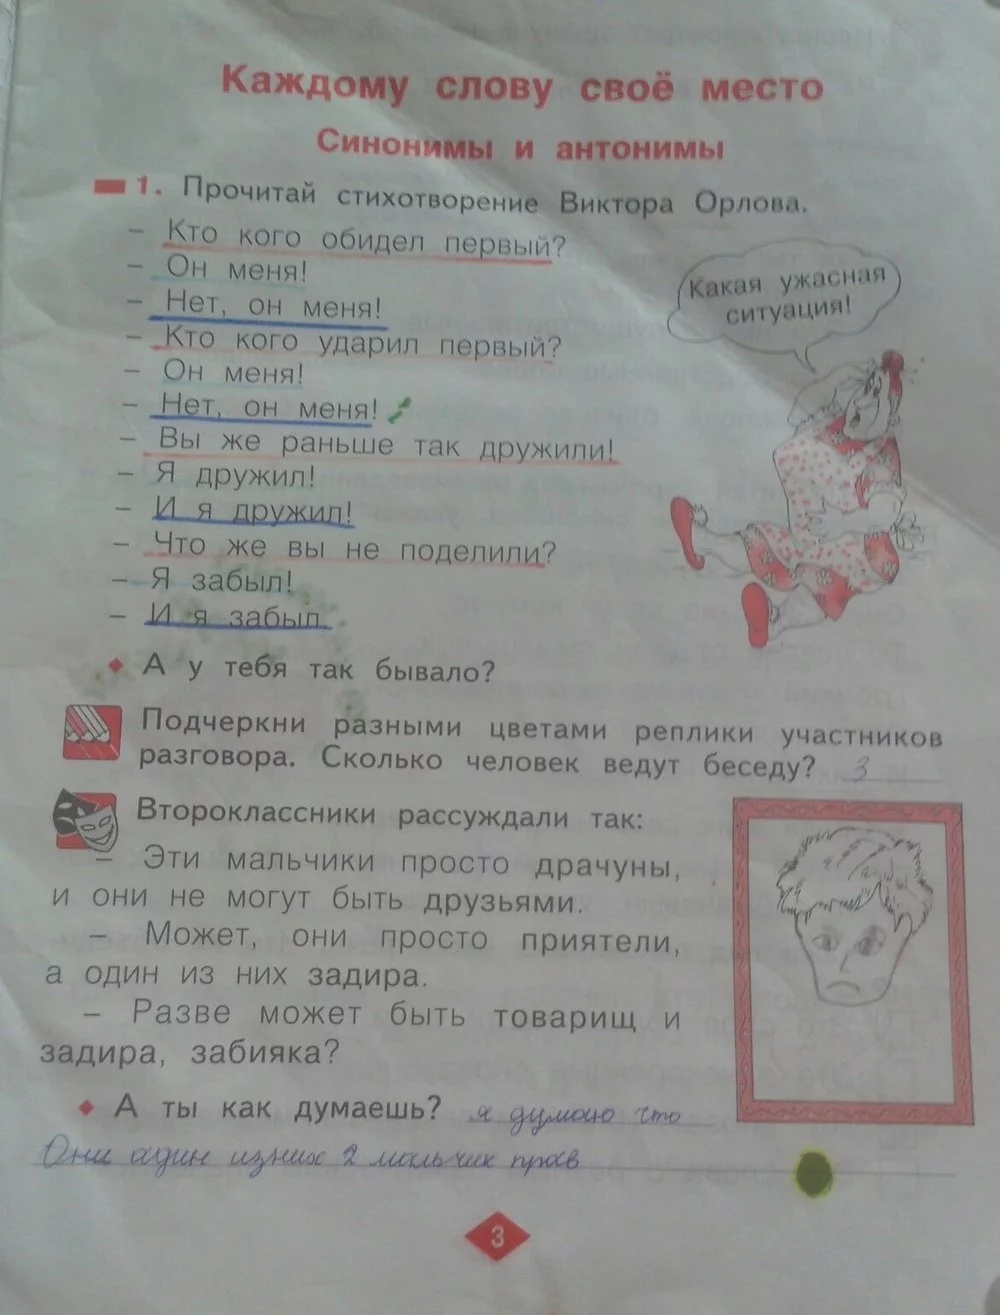 Каждому слову своё место
Синонимы и антонимы
1. Прочитай стихотворение Виктора Орлова.
– Кто кого обидел первый?
– Он меня!
– Нет, он меня!
– Кто кого ударил первый?
– Он меня!
– Нет, он меня!
– Вы же раньше так дружили!
– Я дружил!
– И я дружил!
– Что же вы не поделили?
– Я забыл!
– И я забыл.
Какая ужасная
ситуация!
◆ А у тебя так бывало?
Подчеркни разными цветами реплики участников
разговора. Сколько человек ведут беседу? 3
Второклассники рассуждали так:
– Эти мальчики просто драчуны,
и они не могут быть друзьями.
– Может, они просто приятели,
а один из них задира.
– Разве может быть товарищ и
задира, забияка?
◆ А ты как думаешь? я думаю что
Они один изних 2 мальчик прав
3